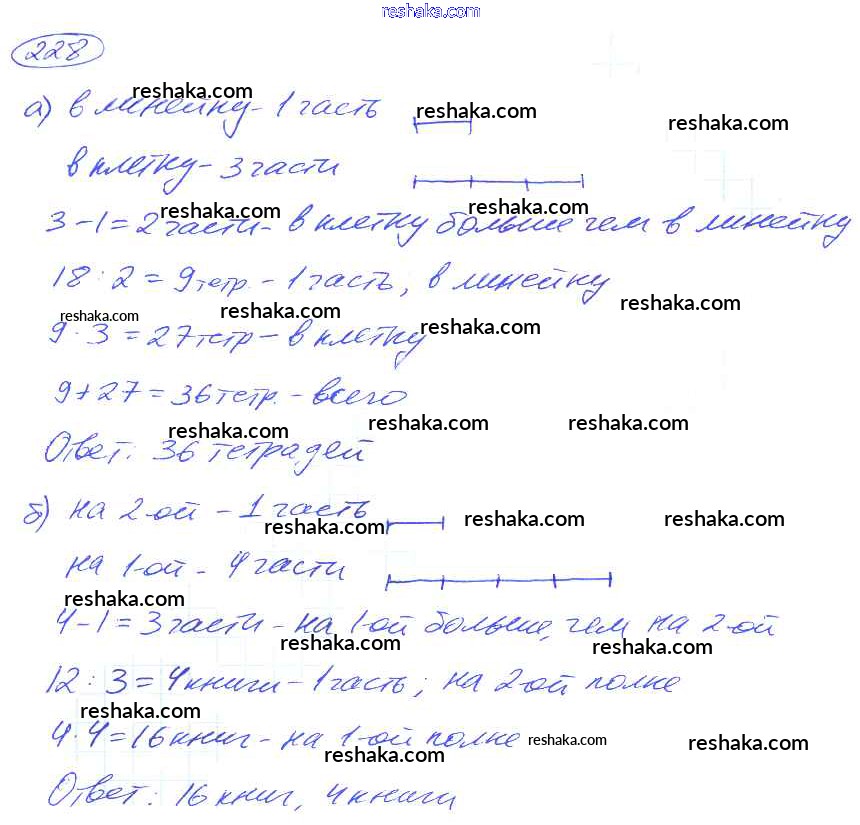 reshaka.com
228
reshaka.com
а) в линейку - 1 часть
reshaka.com
reshaka.com
в клетку - 3 части
reshaka.com
reshaka.com
3 - 1 = 2 части - в клетку больше чем в линейку
18 : 2 = 9 тетр. - 1 часть; в линейку
reshaka.com
reshaka.com
reshaka.com
reshaka.com
9 · 3 = 27 тетр - в клетку
9 + 27 = 36 тетр. - всего
reshaka.com
reshaka.com
reshaka.com
Ответ: 36 тетрадей
б) на 2-ой - 1 часть
reshaka.com
reshaka.com
reshaka.com
на 1-ой - 4 части
reshaka.com
4 - 1 = 3 части - на 1-ой больше, чем на 2-ой
reshaka.com
reshaka.com
12 : 3 = 4 книги - 1 часть; на 2-ой полке
reshaka.com
4 · 4 = 16 книг - на 1-ой полке
reshaka.com
reshaka.com
reshaka.com
Ответ: 16 книг, 4 книги